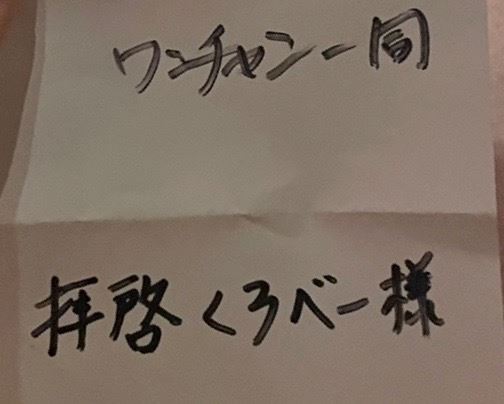 ワンチャン一同
拝啓くろべー様